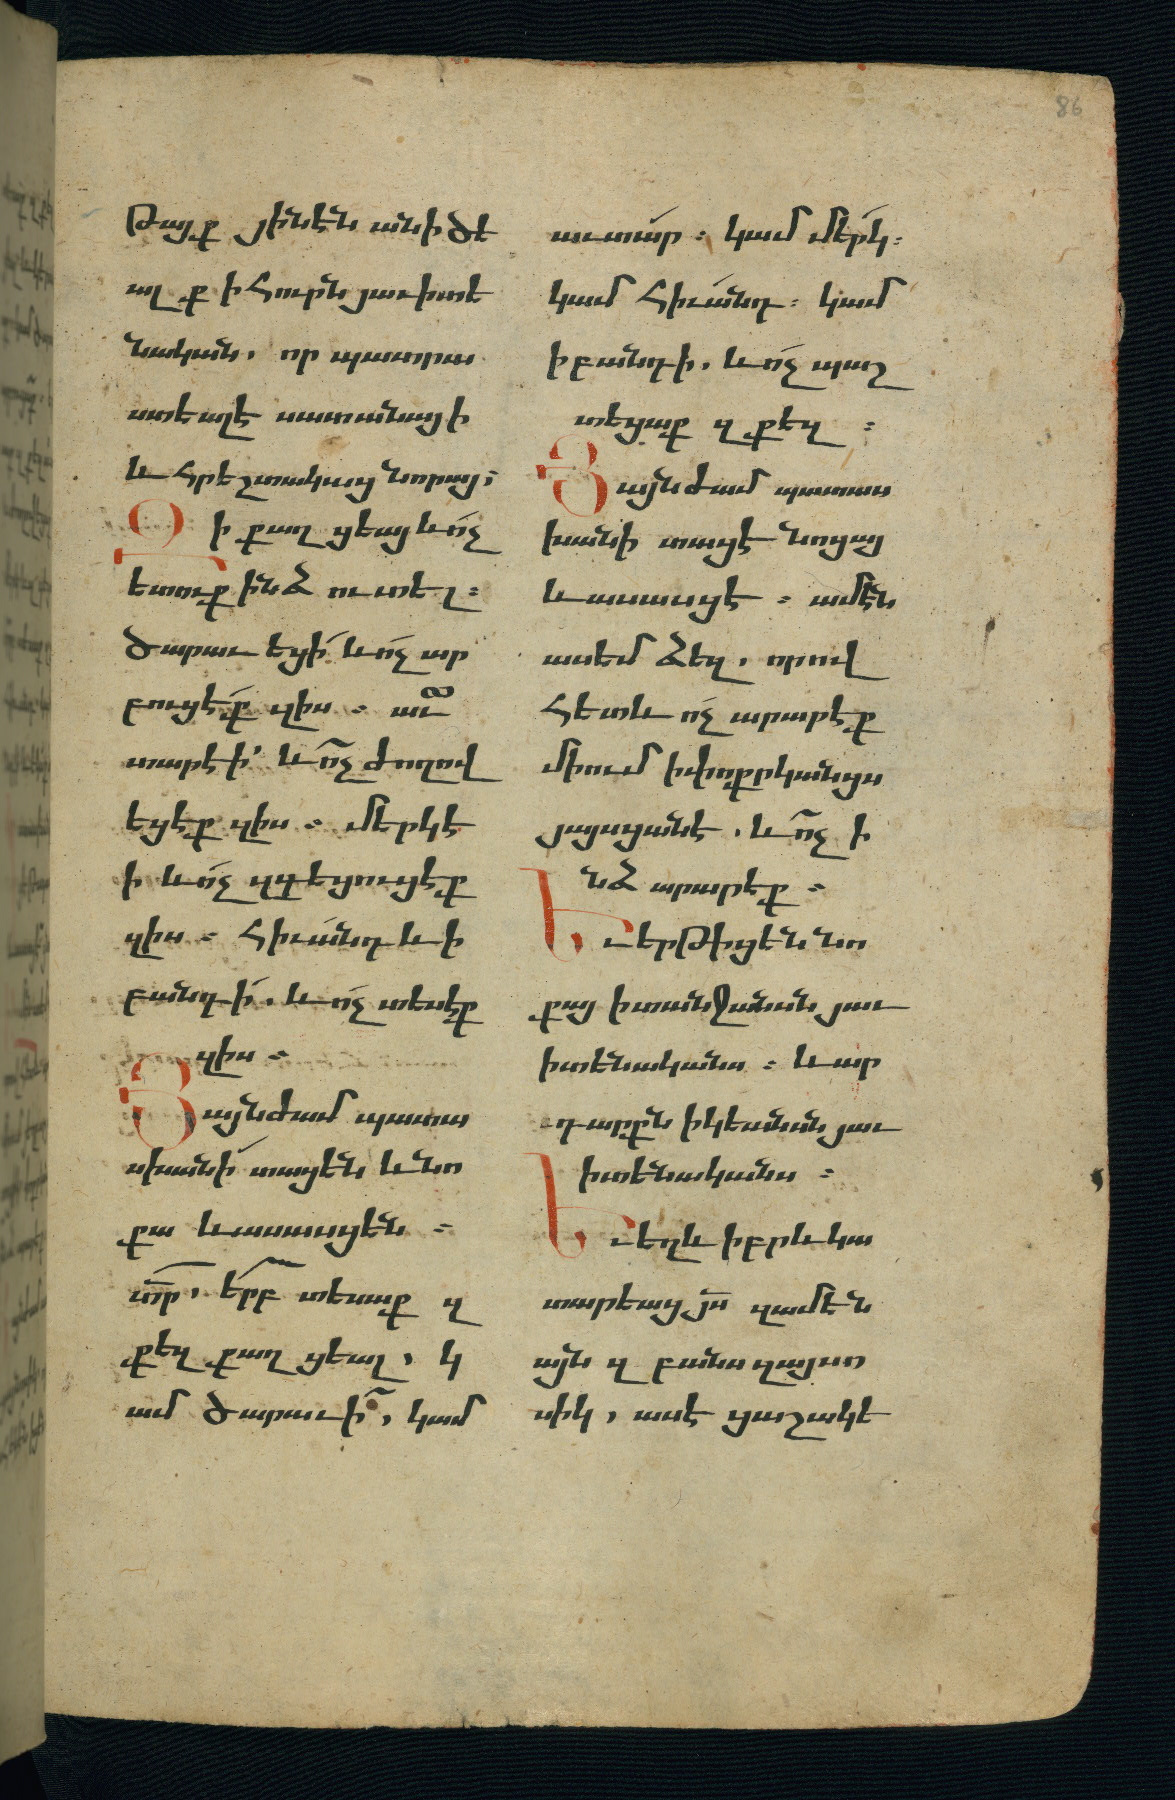 86
թայք յինէն անիծե
ալ ք ի հուրն յաւիտե
նական, որ պատրա
ստեալէ սատանայի
և հրեշտակաց նորայ,
Զի քաղ ցեայ և ոչ
ետուք ինձ ուտել։
ծարաւ եցի և ոչ ար
բուցէք զիս։ աւ
տարէի՝ և ոչ ժողով
եցէք զիս։ մերկէ
ի և ոչ զգեցուցէք
զիս։ հիւանդ և ի
բանդի, և ոչ տեսէք
զիս։
Յայնժամ պատա
սխանի տացեն և նո
քա և ասասցեն։
տր, երբ տեսաք զ
քեզ քաղ ցեալ, կ
ամ ծարաւի, կամ
աւտար։ կամ մերկ։
կամ հիւանդ։ կամ
ի բանդի, և ոչ պաշ
տեցաք զ քեզ։
Յայնժամ պատաս
խանի տացէ նոցայ
և ասասցէ։ ամէն
ասեմ ձեզ, որով
հետև ոչ արարէք
միում ի փոքրկանցս
յայսցանէ, և ոչ ի
նձ արարէք։
Եւ երթիցեն նո
քայ ի տանջանսն յաւ
իտենականս։ և ար
դարքն ի կեանսն յաւ
իտենականս։
Եւ եղև իբրև կա
տարեայ յս զամեն
այն զ բանս զայսո
սիկ, ասէ ցաշակե